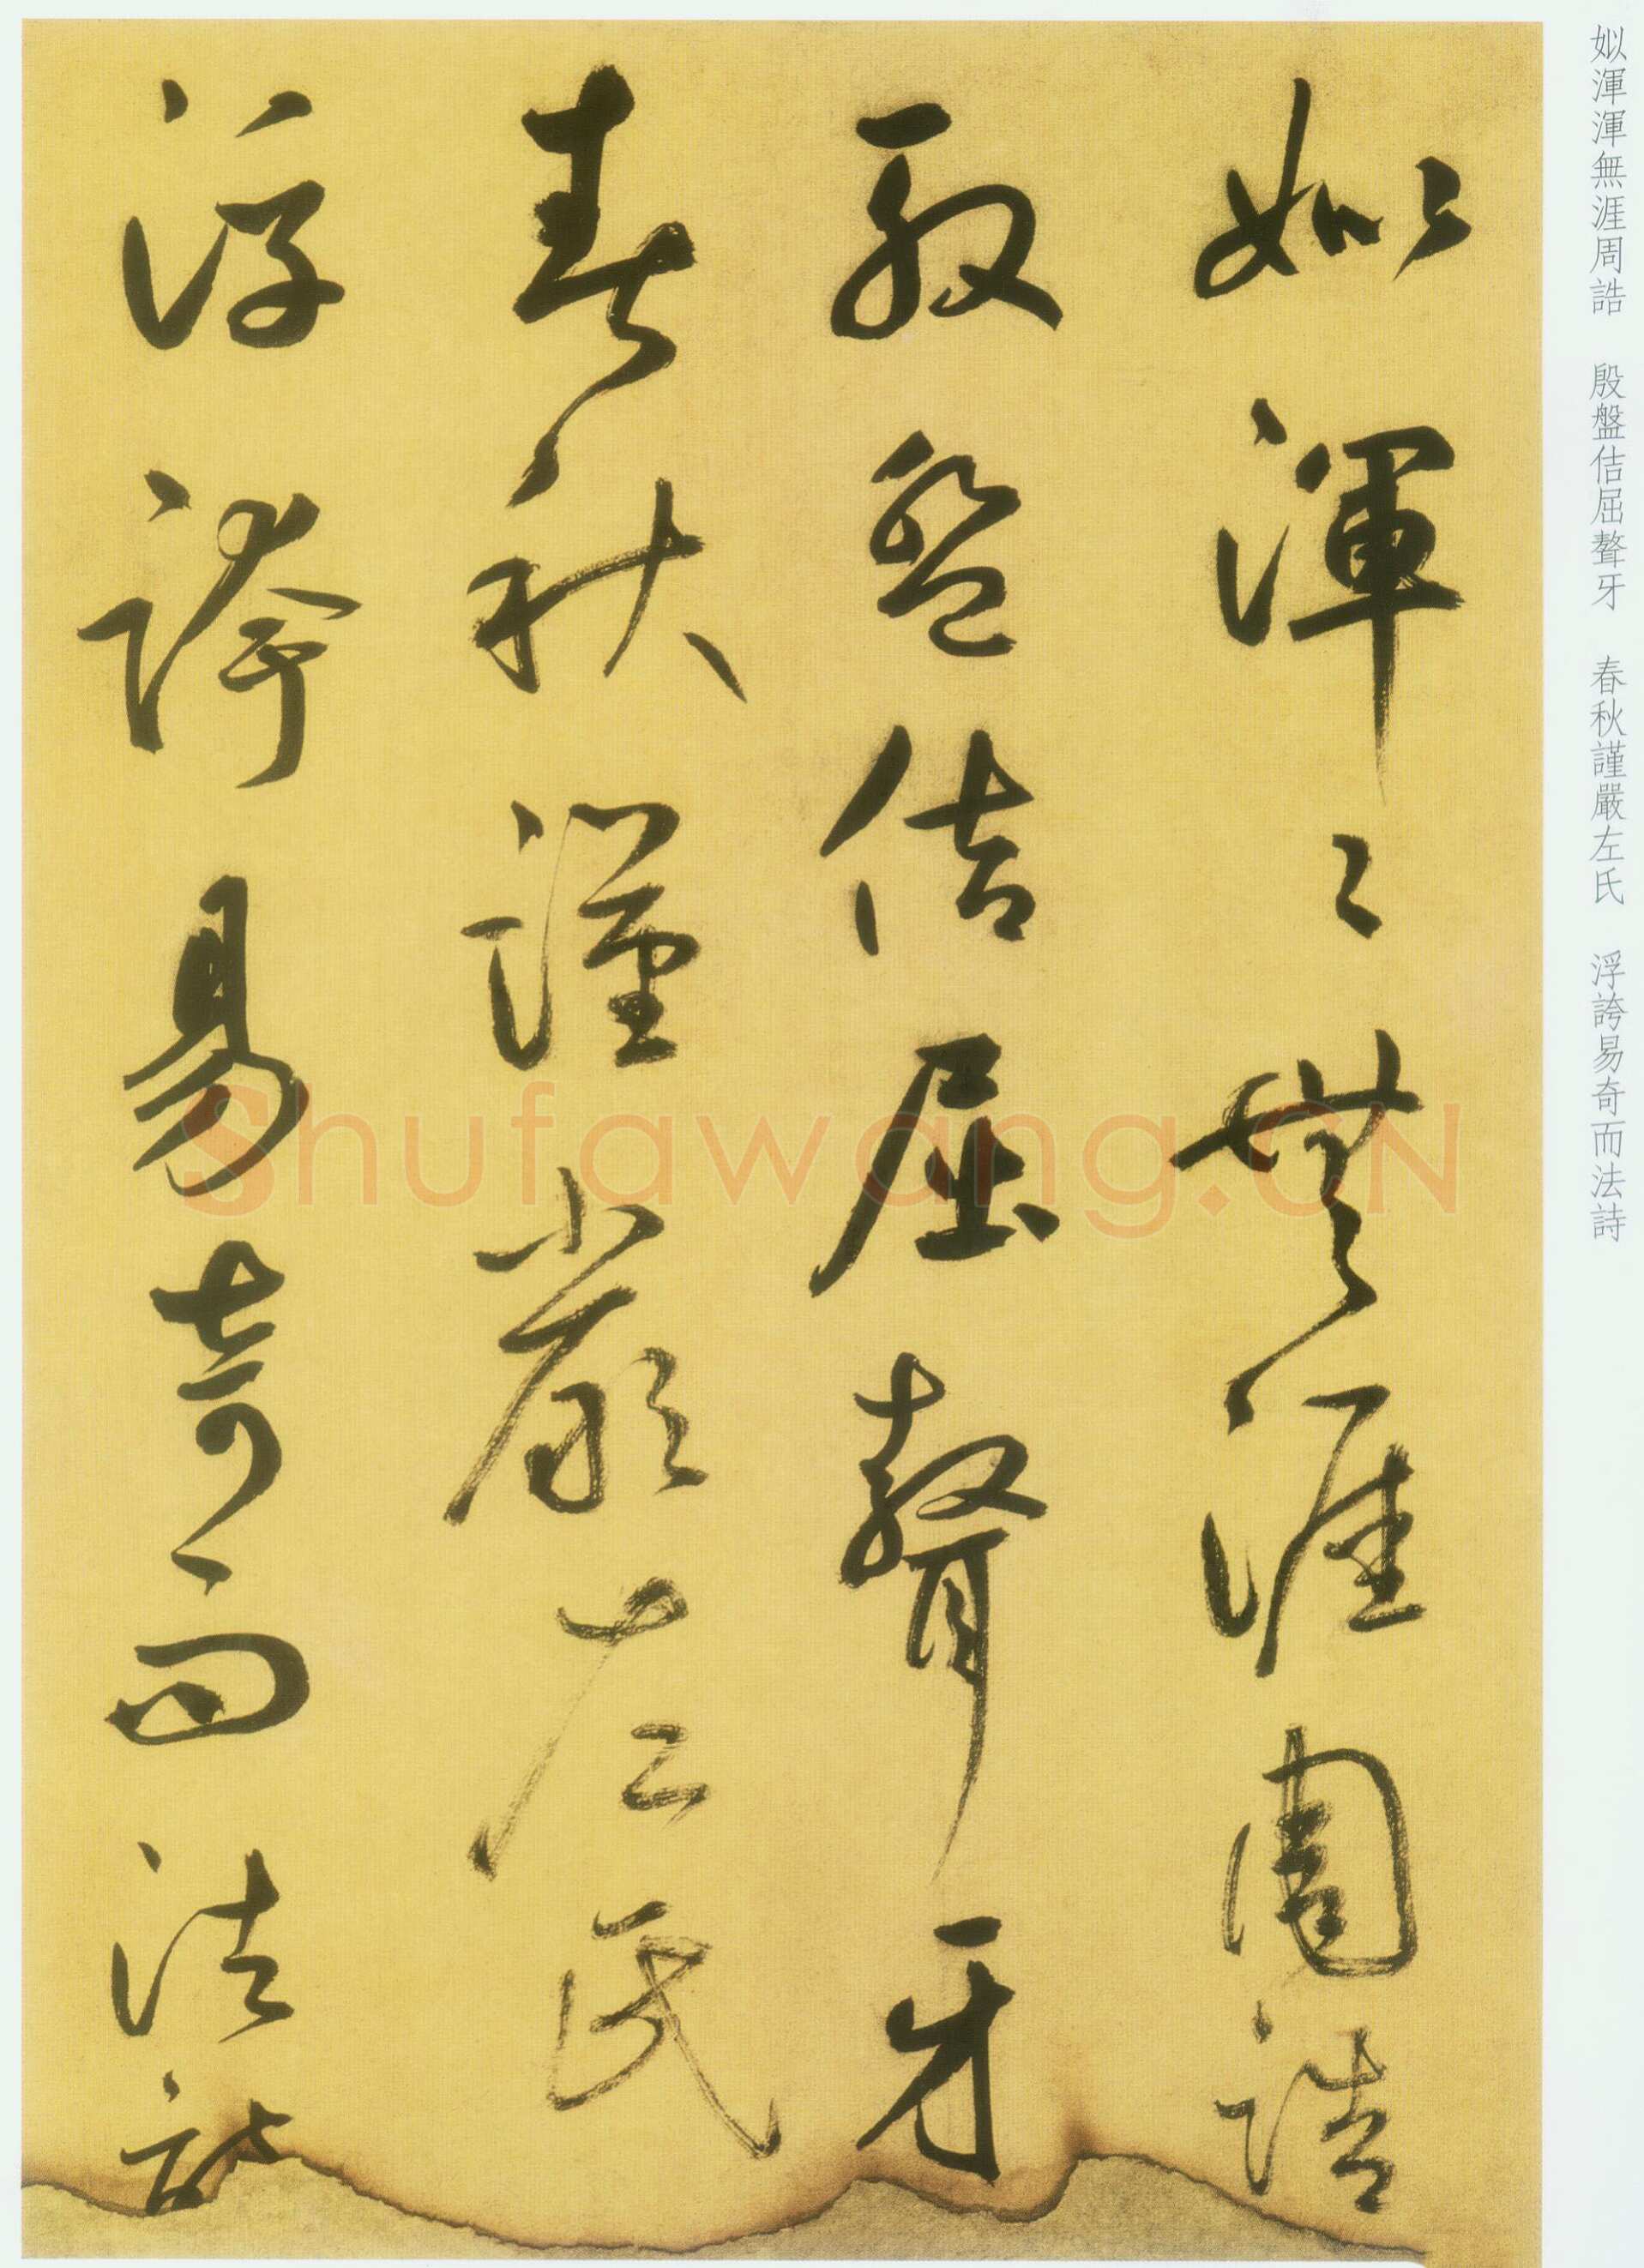 姒渾渾無涯周誥　殷盤佶屈聱牙　春秋謹嚴左氏　浮誇易奇而法詩
姒渾〻無涯周誥
殷盤佶屈聱牙
春秋謹嚴左氏
浮誇易奇而法詩
Shufawang.CN